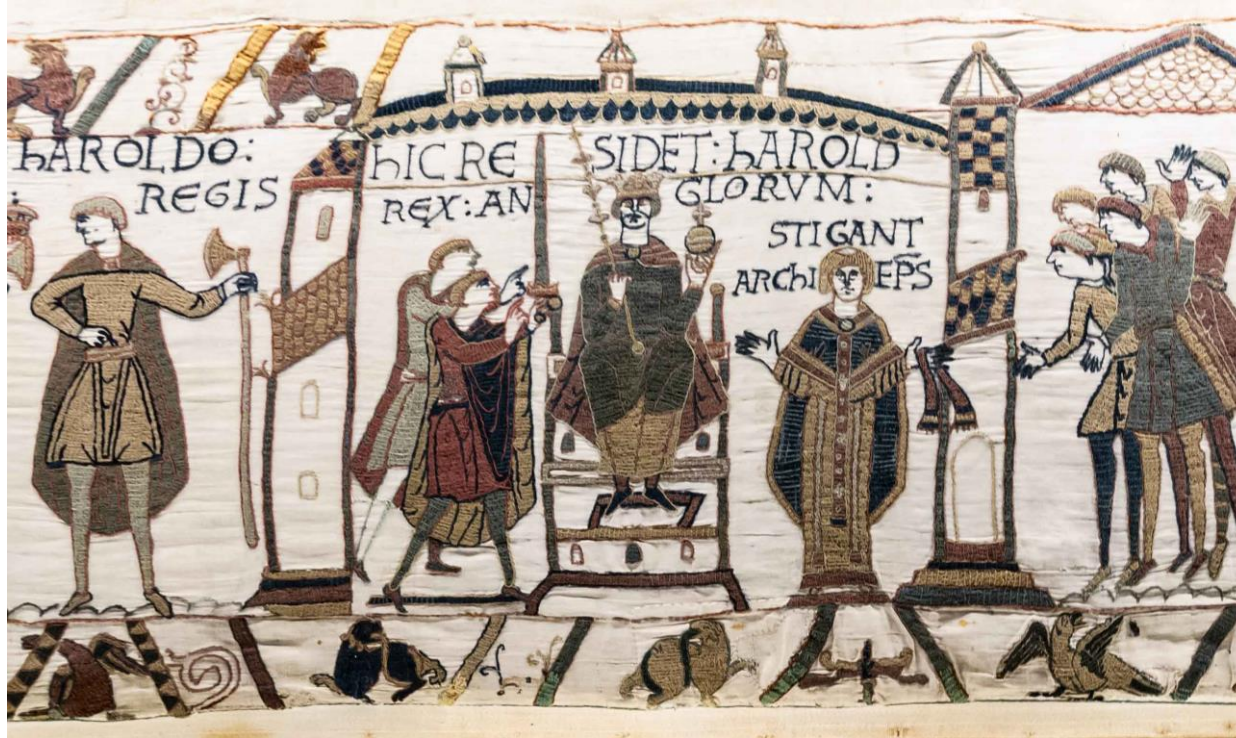 hAROLDO:
: REGIS
hIC RE SIDET: hAROLD
REX: AN GLORVM:
STIGANT
ARChI EP̄S